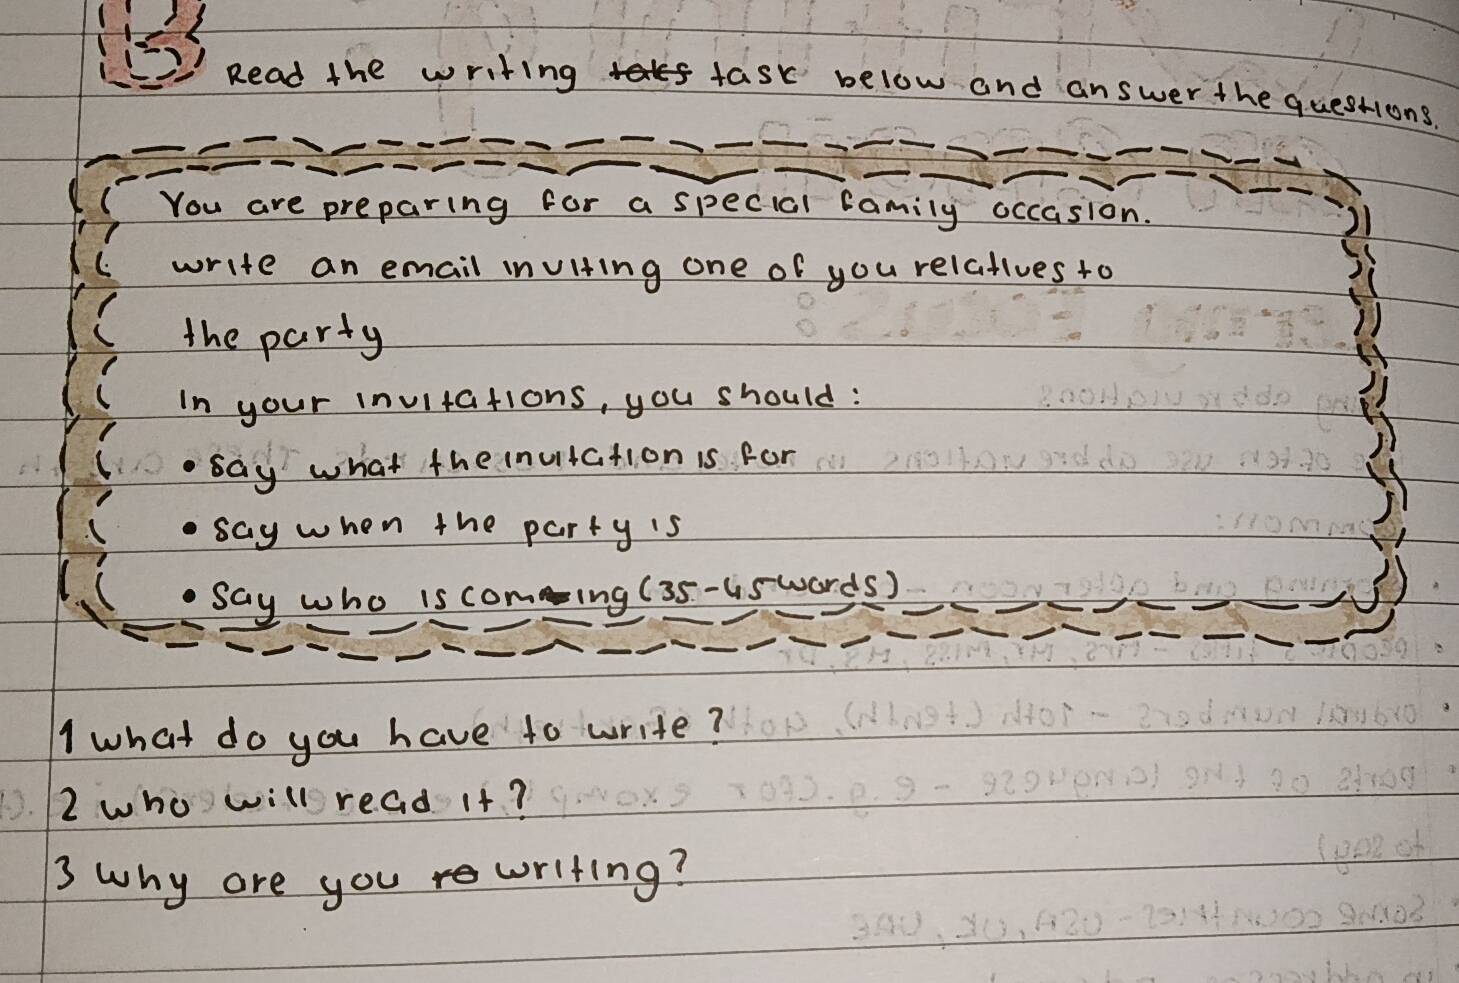 B
Read the writing task below and answer the questions.
You are preparing for a special family occasion.
write an email inviting one of you relatives to
the party
In your invitations, you should:
• say what the invitation is for
• say when the party is
• say who is coming (35-45 words)
1 what do you have to write?
2 who will read it?
3 why are you writing?